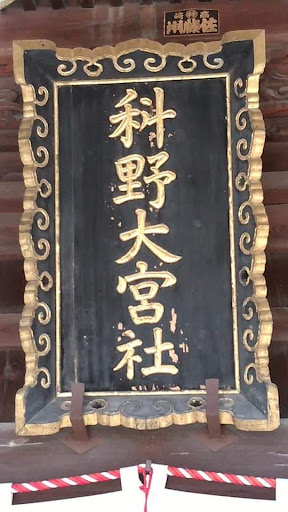 科野大宮社